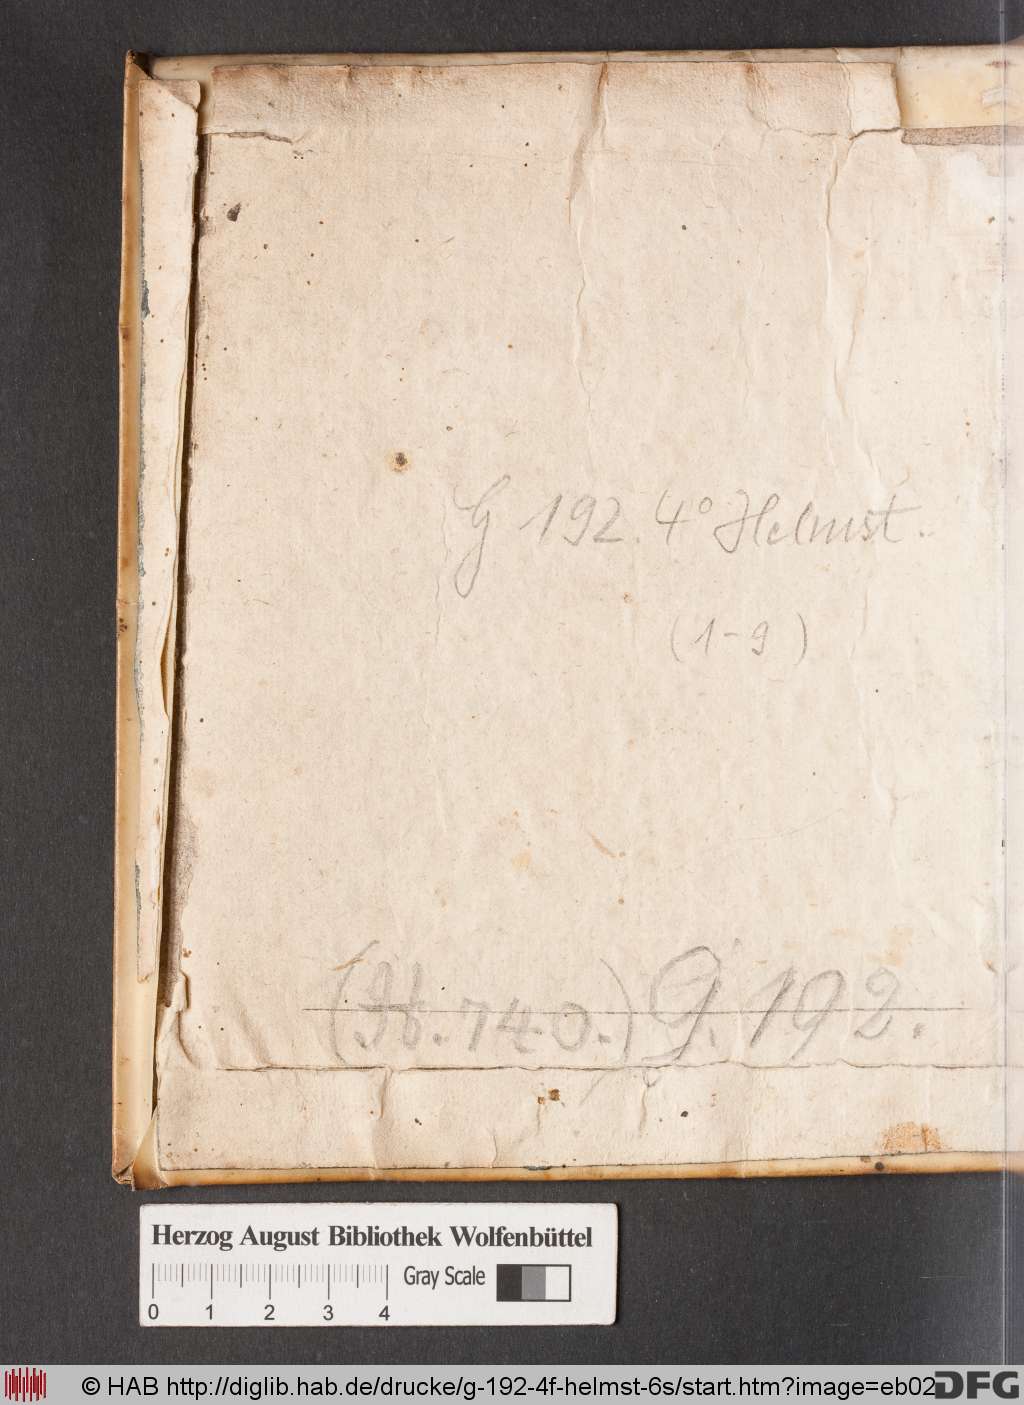 G 192. 4° Helmst.
(1-9)
(H. 740.) G. 192.
Herzog August Bibliothek Wolfenbüttel
Gray Scale
0 1 2 3 4
© HAB http://diglib.hab.de/drucke/g-192-4f-helmst-6s/start.htm?image=eb02
DFG